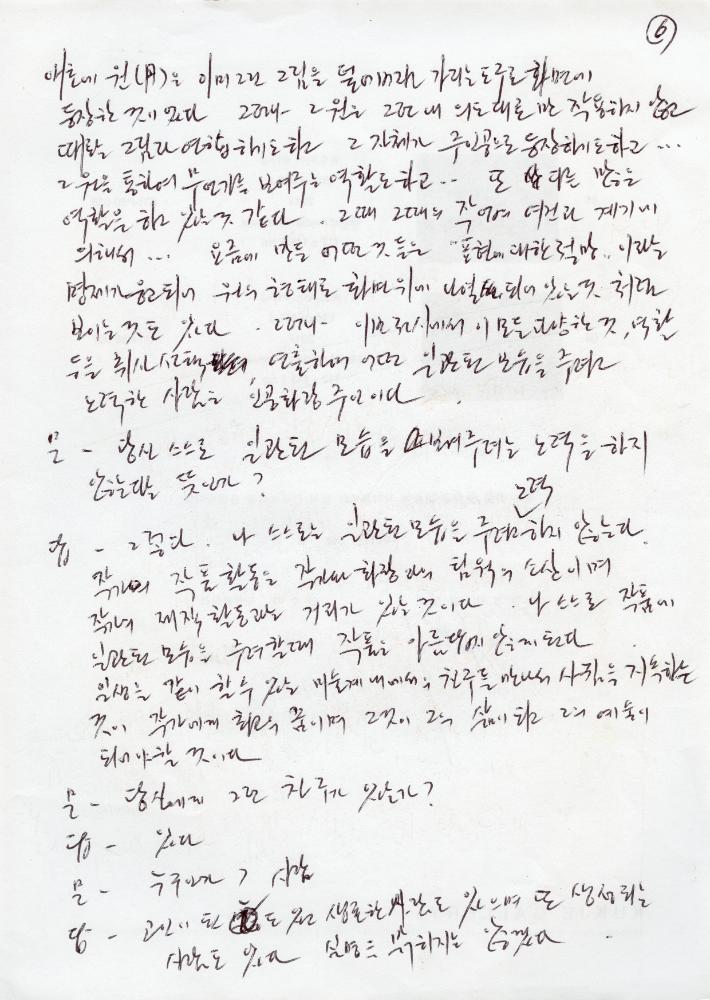 ⑥
애초에 원(円)은 이미 그린 그림을 덮어버리고 가리는 도구로 화면에
등장한 것이 있다 그러나 그 원을 그런 내 의도대로만 작용하지 않고
때로는 그림과 연합하기도 하고 그 자체가 주인공으로 등장하기도 하고 ...
그 원을 통하여 무언가를 보여주는 역할도 하고 .. 또 다른 많은
역할을 하고 있는 것 같다. 그때 그때의 작업의 여건과 계기에
의해서 ... 요즘에 만든 어떤 것들은 "표현에 대한 절망" 이라는
명제가 응고되어 원의 형태로 화면 위에 나열되어 있는 것 처럼
보이는 것도 있다. 그러나 이번 전시에서 이 모든 다양한 것, 역할
등을 취사 선택 연출하여 어떤 일관된 모습을 주려고
노력한 사람은 인공화랑 주인이다.
문 - 당신 스스로 일관된 모습을 보여주려는 노력을 하지
않는다는 뜻인가?
노력
답 - 그렇다. 나 스스로는 일관된 모습을 주려고 하지 않는다.
작가의 작품활동은 작가와 화랑과의 팀웍의 소산이며
작가의 제작 활동과는 거리가 있는 것이다. 나 스스로 작품에
일관된 모습을 주려할때 작품은 아름답지 않게 된다
일생을 같이 할 수 있는 미술계 내에서의 친구를 만나서 사귐을 지속하는
것이 작가에게 최고의 꿈이며 그것이 그의 삶이 되고 그의 예술이
되어야 할 것이다
문 - 당신에게 그런 친구가 있는가?
답 - 있다
문 - 누구인가?
답 - 고인이 된 도 있고 생존한 사람도 있으며 또 생성되는
사람도 있다 실명은 밝히지는 않겠다.